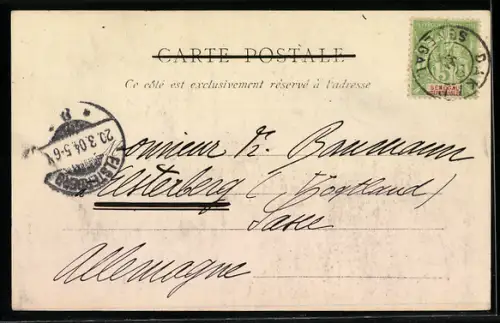 CARTE POSTALE
Ce côté est exclusivement réservé à l'adresse
5
SÉNÉGAL
20.3.04.5-6
ELSTERBERG
Monsieur K. Baumann
Elsterberg (Vogtland)
Saxe
Allemagne